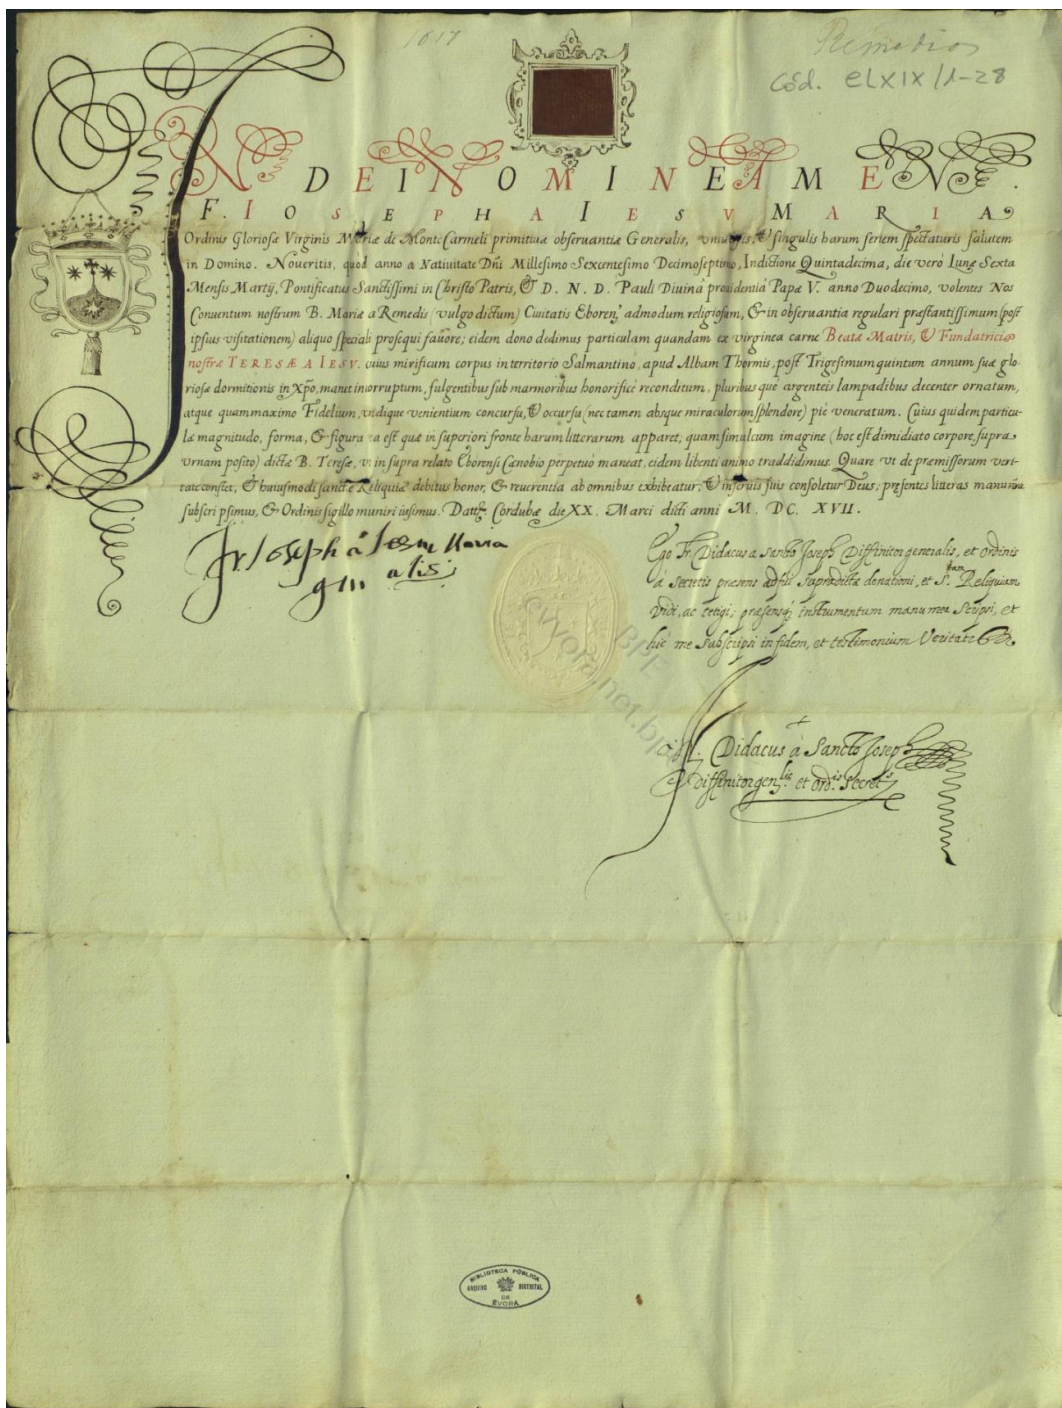 1617
Remedios
Cód. CLXIX/1-28
IN DEI NOMINE AMEN.
F. IOSEPH A IESV MARIA
Ordinis Gloriosæ Virginis Mariæ de Monte Carmeli primitiuæ obseruantiæ Generalis, vniuersis, & singulis harum seriem spectaturis salutem
in Domino. Noueritis, quod anno a Natiuitate Dñi Millesimo Sexcentesimo Decimoseptimo, Indictione Quintadecima, die verò Lunæ Sexta
Mensis Martij, Pontificatus Sanctissimi in Christo Patris, & D. N. D. Pauli Diuina prouidentia Papæ V. anno Duodecimo, volentes Nos
Conuentum nostrum B. Mariæ a Remedis (vulgo dictum) Ciuitatis Eboreñ, admodum religiosum, & in obseruantia regulari præstantissimum (post
ipsius visitationem) aliquo speciali prosequi fauore; eidem dono dedimus particulam quandam ex virginea carne Beatæ Matris, & Fundatricis
nostræ TERESÆ A IESV. cuius mirificum corpus in territorio Salmantino, apud Albam Thormis, post Trigesimum quintum annum suæ glo-
riosæ dormitionis in Xp̃o, manet incorruptum, fulgentibus sub marmoribus honorificè reconditum, pluribus què argenteis lampadibus decenter ornatum,
atque quammaximo Fidelium, vndique venientium concursu, & occursu (nec tamen absque miraculorum splendore) piè veneratum. Cuius quidem particu-
læ magnitudo, forma, & figura ea est quæ in superiori fronte harum litterarum apparet; quam simulcum imagine (hoc est dimidiato corpore, supra
vrnam posito) dictæ B. Teresæ, vt in supra relato Eborensi Cœnobio perpetuò maneat, eidem libenti animo traddidimus. Quare vt de præmissorum veri-
tate constet, & huiusmodi sanctæ Reliquiæ debitus honor, & reuerentia ab omnibus exhibeatur, & in seruis suis consoletur Deus; præsentes litteras manu ñra
subscripsimus, & Ordinis sigillo muniri iusimus. Datt. Cordubæ die XX. Marci dicti anni M. DC. XVII.
Fr. Joseph á Jesu Maria
gnalis
Ego Fr. Didacus a sancto Joseph Diffinitor generalis, et ordinis
á Secretis præsens adfui supradictæ donationi, et S.tam Reliquiam
vidi, ac tetigi; præsensq; instrumentum manu mea scripsi, et
hic me subscripsi in fidem, et testimonium veritatis
Fr. Didacus á Sancto Joseph
Diffinitor gen.lis et ord.is Secret.s
BPE
BIBLIOTECA PÚBLICA
ARQUIVO DISTRITAL
DE
ÉVORA